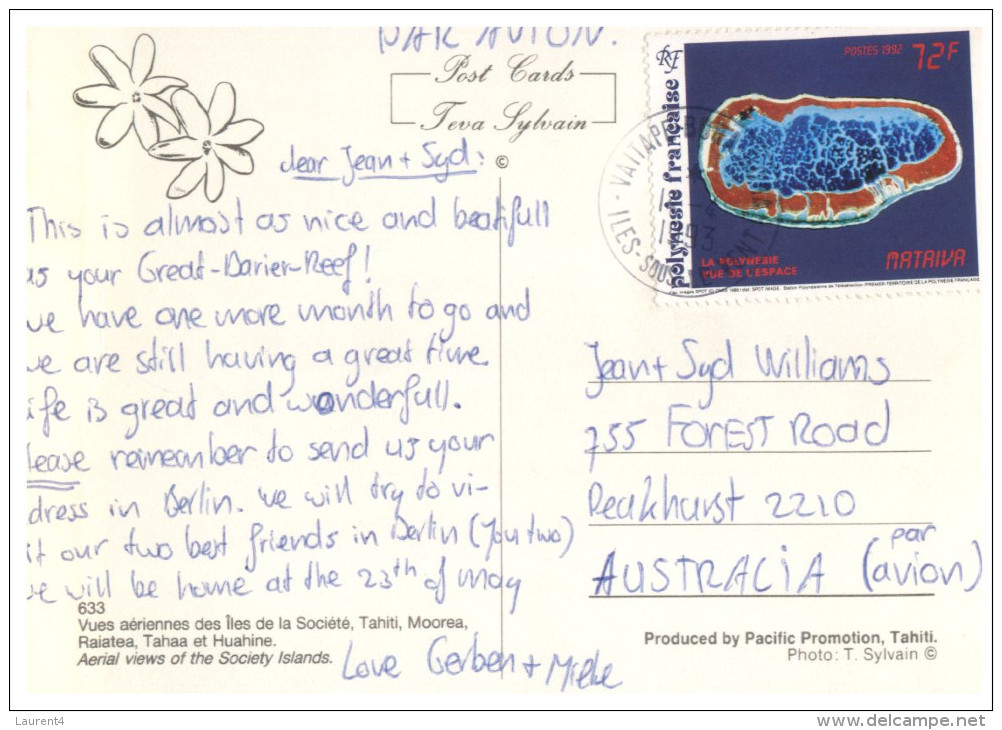 PAR AVION.
Post Cards
Teva Sylvain
©
RF
polynésie française
POSTES 1992
72F
LA POLYNESIE
VUE DE L'ESPACE
MATAIVA
VAITAPE - BORA
ILES-SOUS-LE-VENT
1993
dear Jean + Syd:
This is almost as nice and beatifull
as your Great-Barier-Reef!
we have one more month to go and
we are still having a great time.
ife is great and wonderfull.
lease remeember to send us your
dress in Berlin. we will try to vi-
it our two best friends in Berlin (You two)
we will be home at the 23th of may
Love Gerben + Mieke
Jean + Syd Williams
755 FOREST ROAD
Peakhurst 2210
AUSTRALIA (par avion)
633
Vues aériennes des Îles de la Société, Tahiti, Moorea,
Raiatea, Tahaa et Huahine.
Aerial views of the Society Islands.
Produced by Pacific Promotion, Tahiti.
Photo: T. Sylvain ©
Laurent4
www.delcampe.net